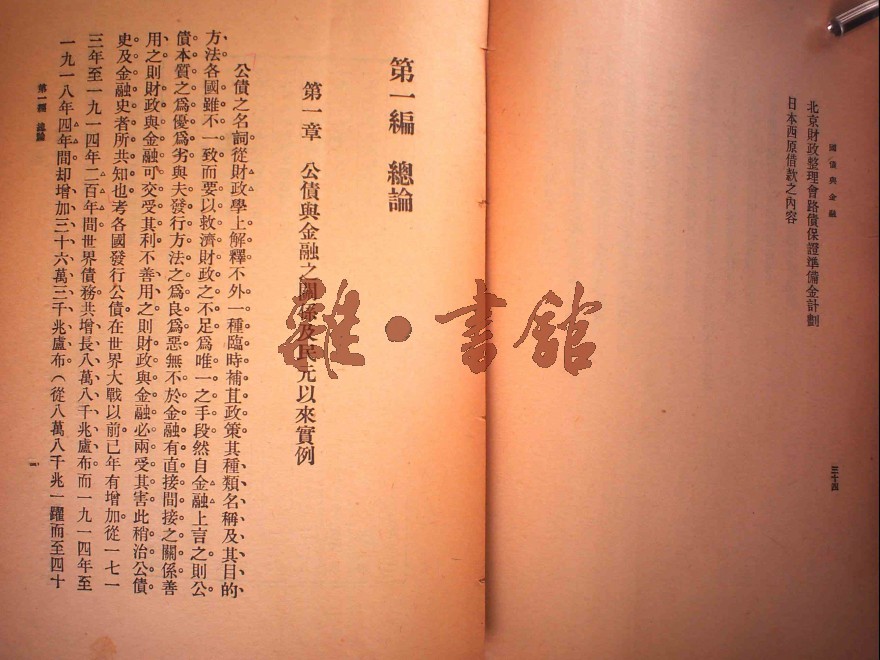 國債與金融
北京財政整理會路債保證準備金計劃
日本西原借款之內容
三十四
第一編 總論
第一章 公債與金融之關係及民元以來實例
公債之名詞從財政學上解釋不外一種臨時補苴政策其種類名稱及其目的
方法各國雖不一致而要以救濟財政之不足爲唯一之手段然自金融上言之則公
債本質之爲優爲劣與夫發行方法之爲良爲惡無不於金融有直接間接之關係善
用之則財政與金融可交受其利不善用之則財政與金融必兩受其害此稍治公債
史及金融史者所共知也考各國發行公債在世界大戰以前已年有增加從一七一
三年至一九一四年二百年間世界債務共增長八萬八千兆盧布而一九一四年至
一九一八年四年間却增加三十六萬三千兆盧布(從八萬八千兆一躍而至四十
第一編 總論
雜·書館